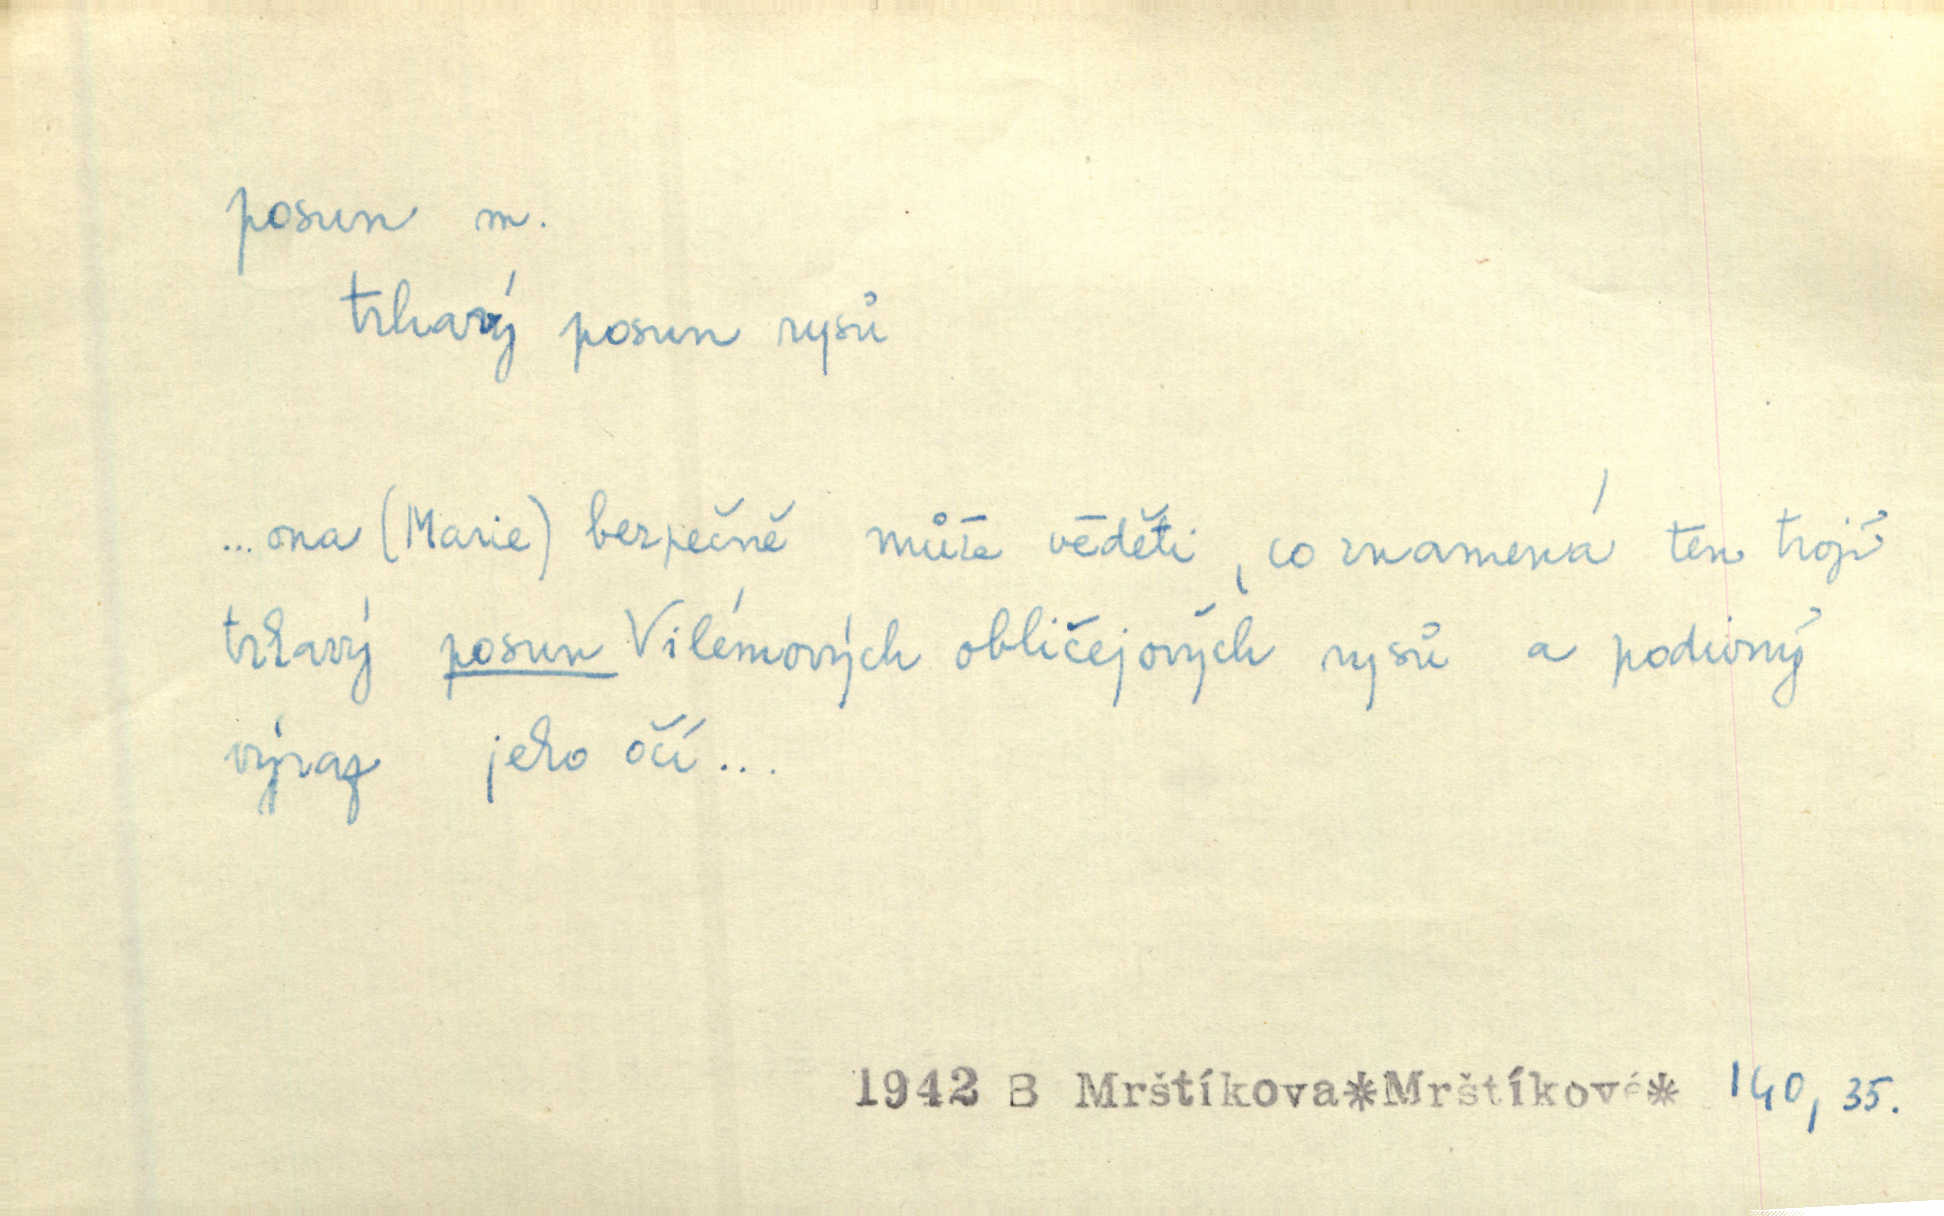 posun m.
trhavý posun rysů
...ona (Marie) bezpečně může věděti, co znamená ten trojí
trhavý posun Vilémových obličejových rysů a podivný
výraz jeho očí...
1942 B Mrštíkova*Mrštíkové* 140, 35.